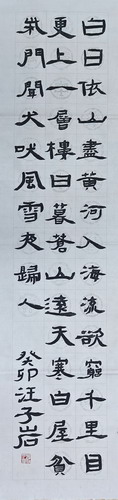 白日依山盡黃河入海流欲窮千里目
更上一層樓日暮蒼山遠天寒白屋貧
柴門聞犬吠風雪夜歸人
癸卯汪子岩